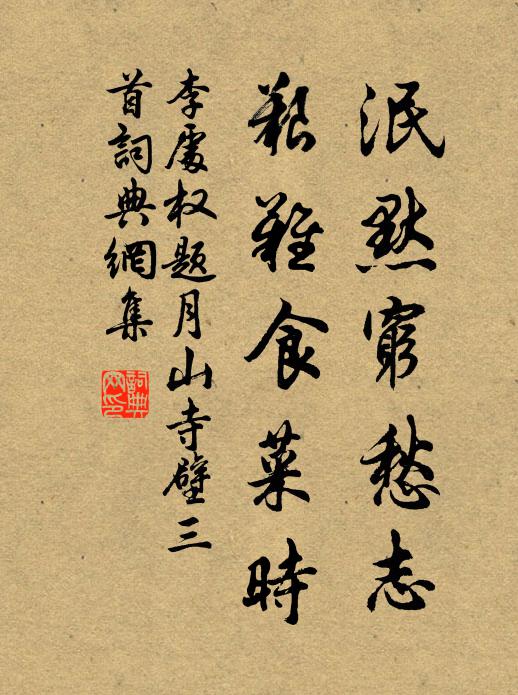 泯默窮愁志
艱難食菜時
李處权题月山寺壁三
首詞典網集
詞典網印